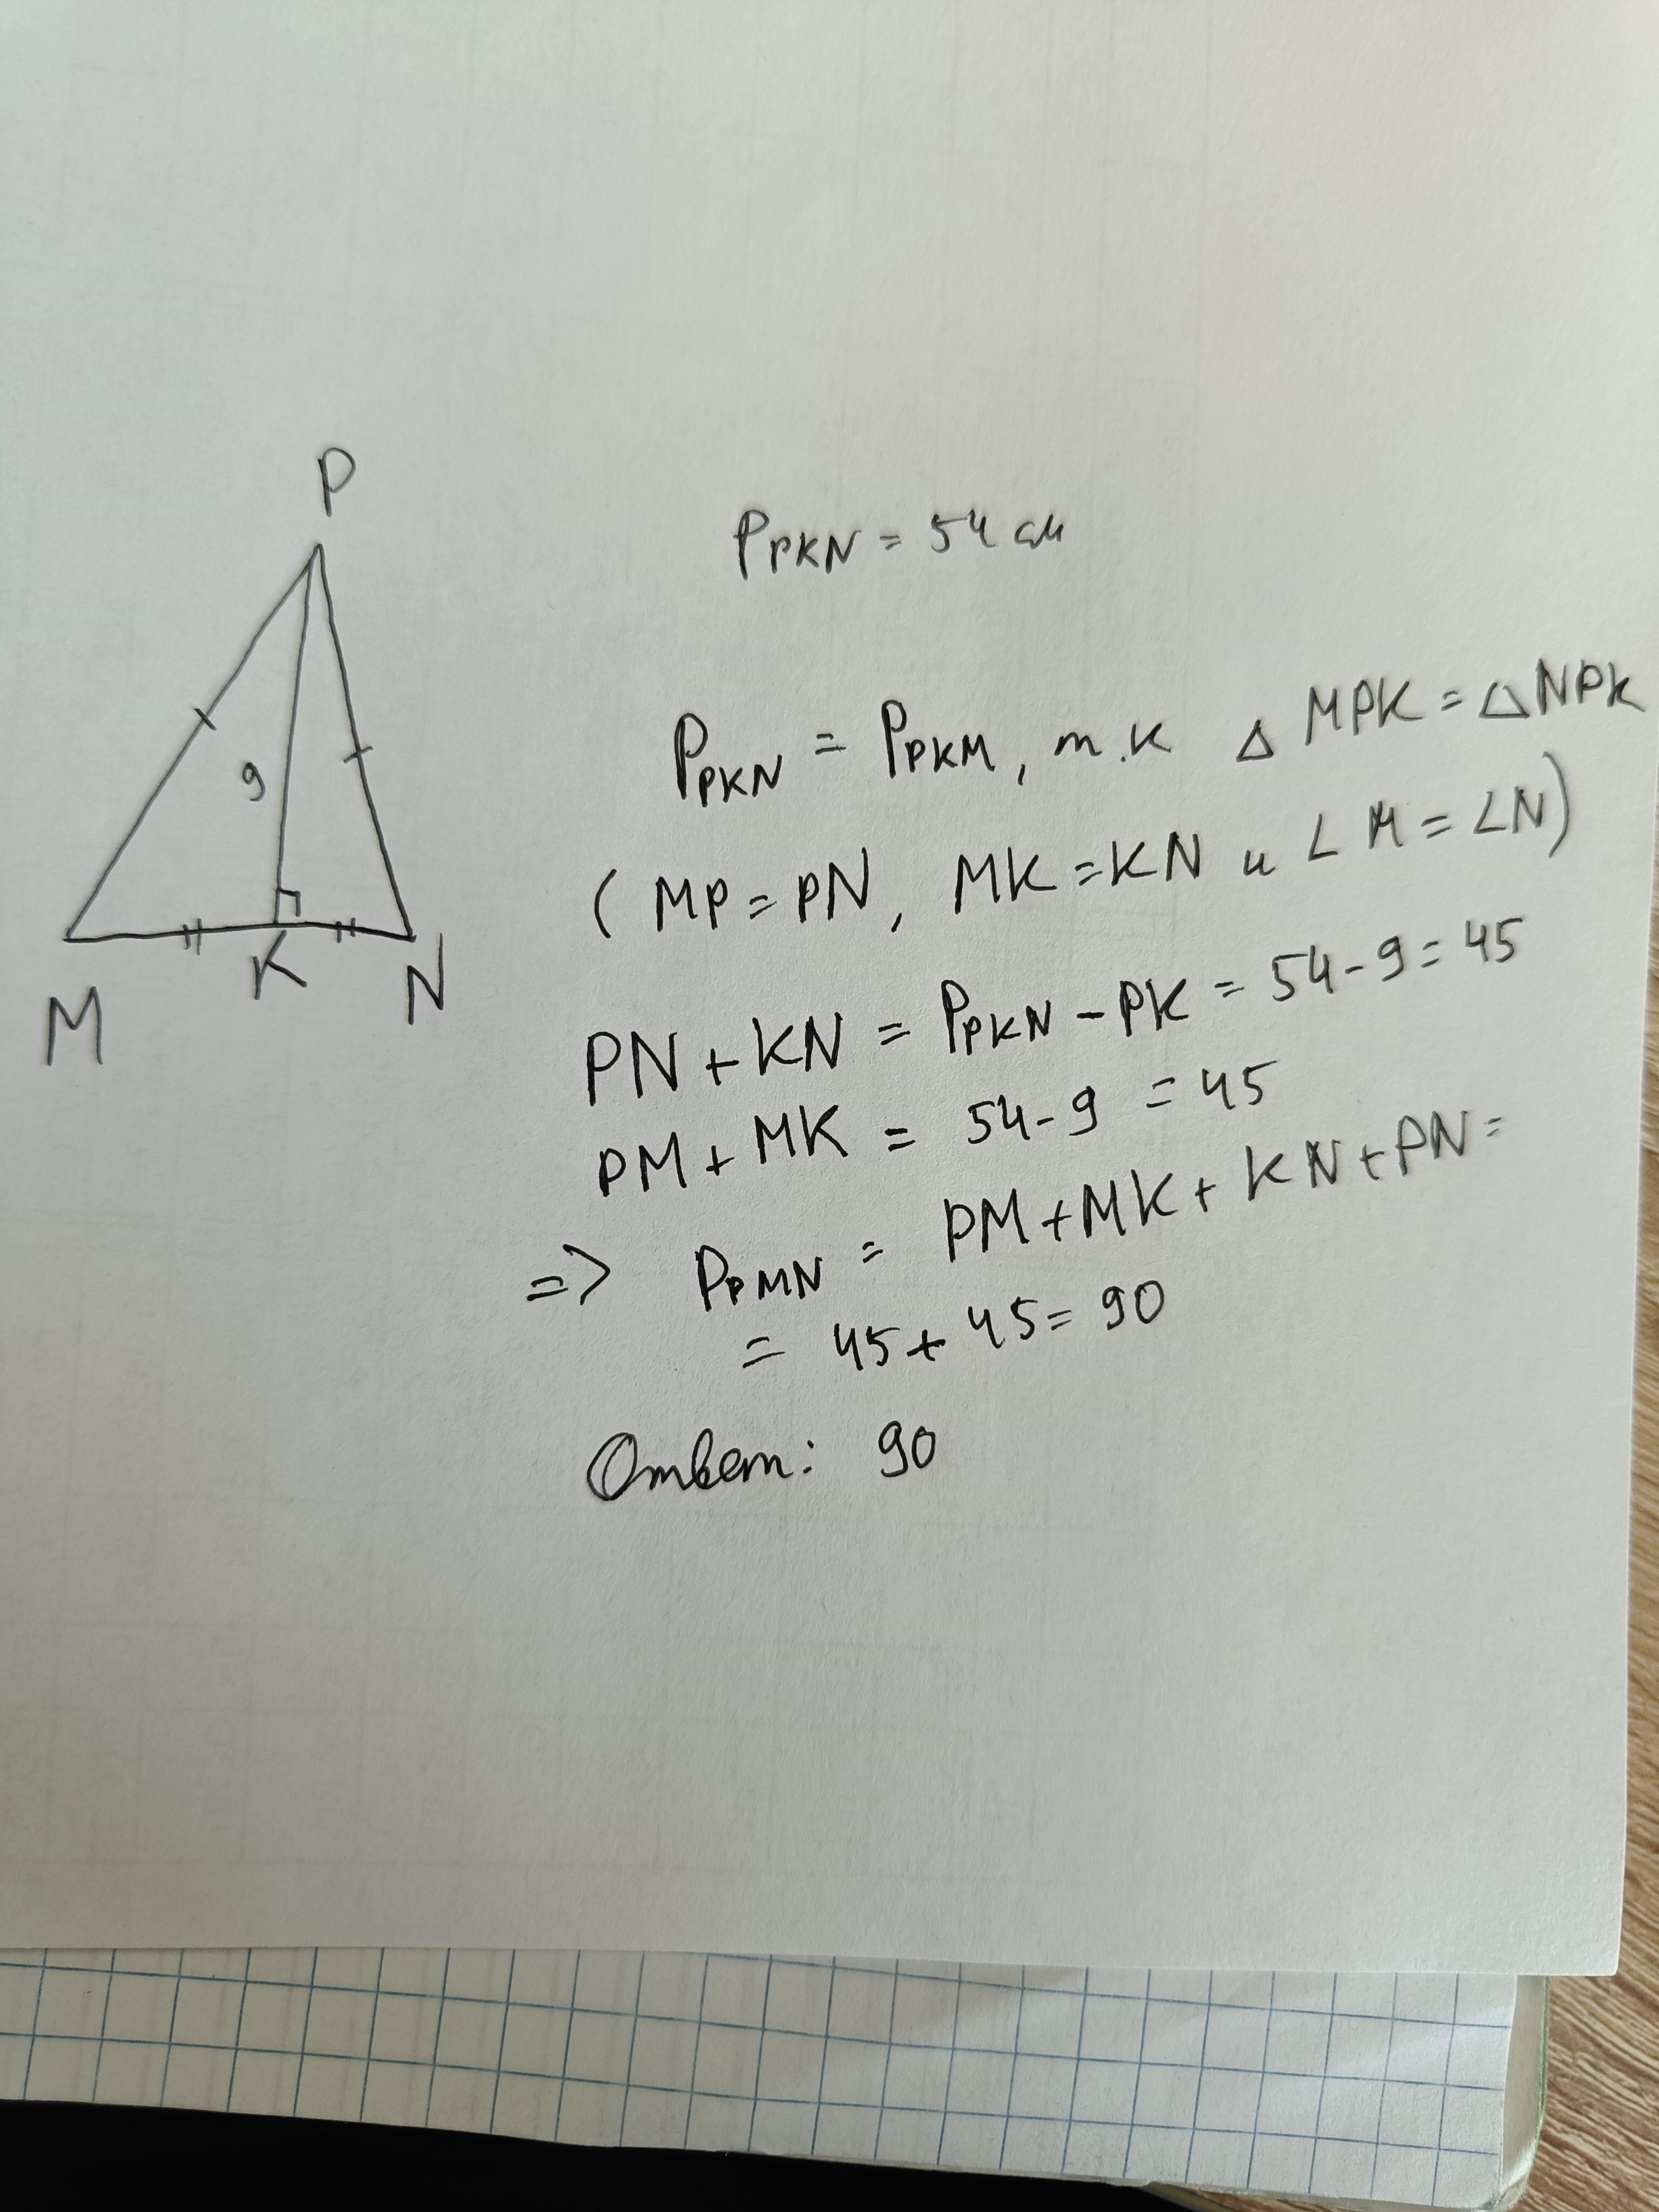 P
9
M
K
N
P PKN = 54 см
P PKN = P PKM, т.к △ MPK = △NPK
( MP = PN, MK = KN и ∠ M = ∠N)
PN + KN = P PKN - PK = 54 - 9 = 45
PM + MK = 54 - 9 = 45
=> P PMN = PM + MK + KN + PN =
= 45 + 45 = 90
Ответ: 90